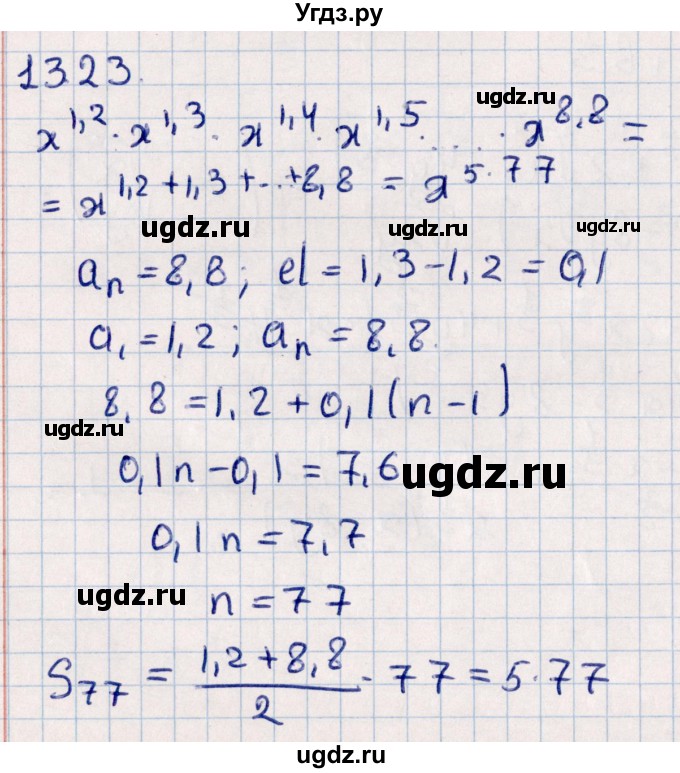 Угдз.ру
1323.
x^1,2 · x^1,3 · x^1,4 · x^1,5 · ... · x^8,8 =
ugdz.ru
= x^1,2+1,3+...+8,8 = x^5·77
ugdz.ru ugdz.ru ugdz.ru
aₙ = 8,8; d = 1,3 - 1,2 = 0,1
a₁ = 1,2; aₙ = 8,8.
8,8 = 1,2 + 0,1(n-1)
ugdz.ru
0,1n - 0,1 = 7,6
ugdz.ru
0,1n = 7,7
ugdz.ru
n = 77
S₇₇ = (1,2+8,8)/2 · 77 = 5·77
ugdz.ru